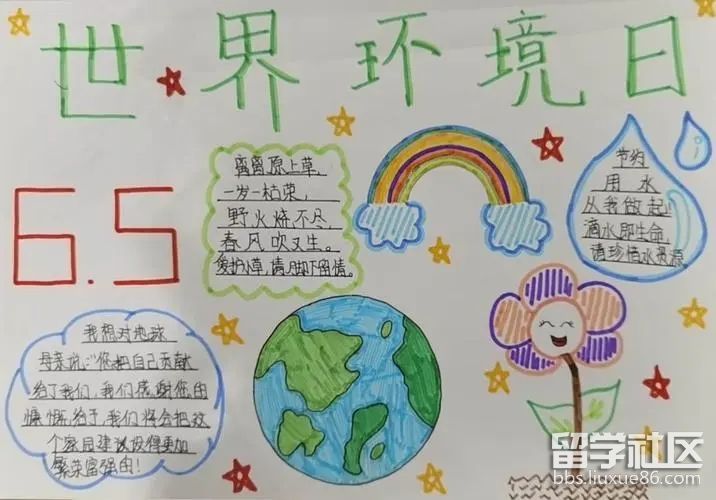 世界环境日
6.5
离离原上草,
一岁一枯荣,
野火烧不尽,
春风吹又生。
爱护小草,请脚下留情。
节约
用水
从我做起!
滴水即生命,
请珍惜水资源
我想对地球
母亲说:“您把自己贡献
给了我们,我们感谢您由
慷慨给予,我们将会把这
个家园建设设得更加
繁荣富强由!
留学社区
bbs.liuxue86.com